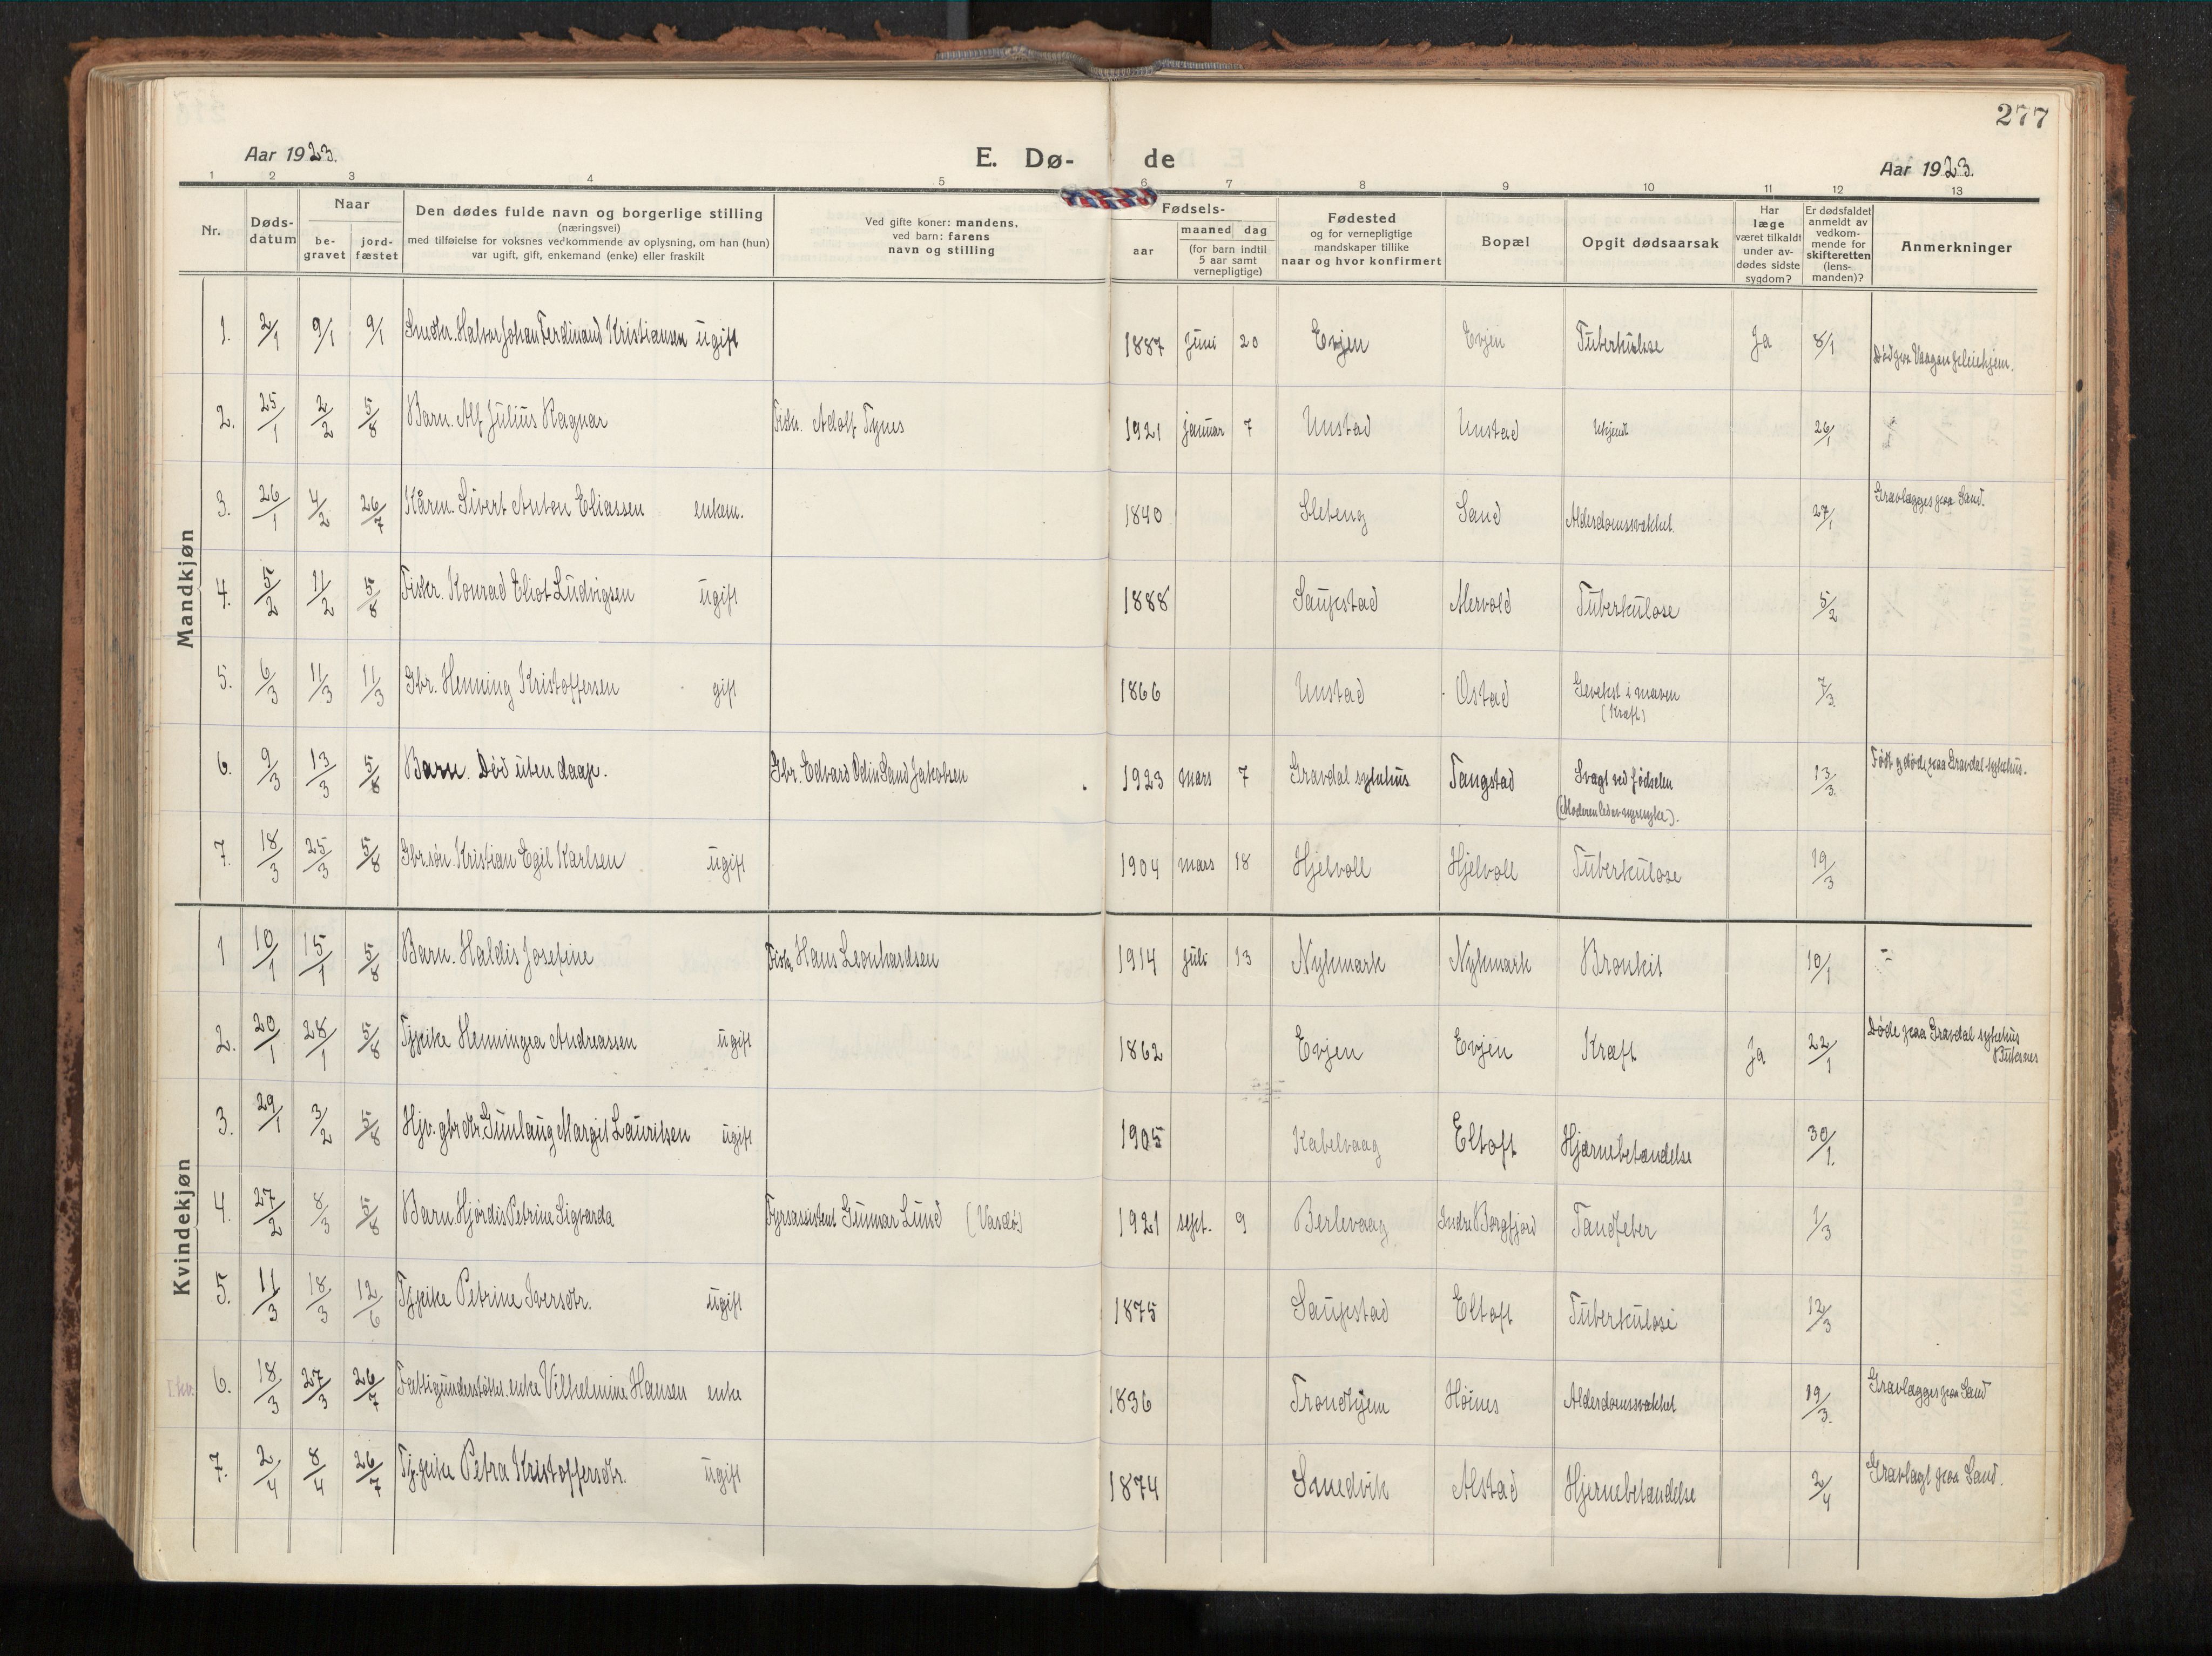 277
Aar 1923. E. Dø- de Aar 1923.
1 2 3 4 5 6 7 8 9 10 11 12 13
Nr.
Døds-
datum
Naar
be-
gravet
jord-
fæstet
Den dødes fulde navn og borgerlige stilling
(næringsvei)
med tilføielse for voksnes vedkommende av oplysning, om han (hun)
var ugift, gift, enkemand (enke) eller fraskilt
Ved gifte koner: mandens,
ved barn: farens
navn og stilling
Fødsels-
aar
maaned dag
(for barn indtil
5 aar samt
vernepligtige)
Fødested
og for vernepligtige
mandskaper tillike
naar og hvor konfirmert
Bopæl
Opgit dødsaarsak
Har
læge
været tilkaldt
under av-
dødes sidste
sygdom?
Er dødsfaldet
anmeldt av
vedkom-
mende for
skifteretten
(lens-
manden)?
Anmerkninger
Mandkjøn
1. 2/1 9/1 9/1 Halvor Johan Ferdinand Kristiansen ugift 1887 Juni 20 Evjen Evjen Tuberkulose Ja 8/1 Død paa Vaagan pleiehjem.
2. 25/1 2/2 5/8 Barn. Alf Julius Ragnar Fiskr. Adolf Tynes 1921 januar 7 Unstad Unstad Ukjendt 26/1
3. 26/1 4/2 26/7 Kårm. Sivert Anton Eliassen enkem. 1840 Sleteng Sand Alderdomssvakhet. 27/1 Gravlægges paa Sand.
4. 5/2 11/2 5/8 Fiskr. Konrad Eliot Ludvigsen ugift 1888 Saupstad Alervold Tuberkulose 5/2
5. 6/3 11/3 11/3 Gbr. Henning Kristoffersen gift 1866 Unstad Ostad Gevekst i maven 7/3.
(Kræft)
6. 9/3 13/3 5/8 Barn. Død uten daap. Gbr. Edvard Odin Sand Jakobsen 1923 mars 7 Gravdal sykehus Tangstad Svagt ved fødselen 13/3. Født og døde paa Gravdal sykehus.
(Moderen led av nyresyke).
7. 18/3 25/3 5/8 Gbr.søn. Kristian Egil Karlsen ugift 1904 mars 18 Hjelvoll Hjelvoll Tuberkulose 19/3
Kvindekjøn
1 10/1 15/1 5/8 Barn. Haldis Josefine Fiskr. Hans Leonhardsen 1914 juli 13 Nykmark Nykmark Bronkit 10/1
2. 20/1 28/1 5/8 Tjpike Henningea Andreassen ugift 1862 Evjen Evjen Kræft Ja 22/1 Døde paa Gravdal sykehus
Buksnes
3. 29/1 3/2 5/8 Hjv. gbrdtr. Gunlaug Margit Lauritsen ugift 1905 Kabelvaag Eltoft Hjernebetændelse 30/1.
4. 27/2 8/3 5/8 Barn Hjørdis Petrine Sigvarda Fyrassistent Gunnar Lund (Vardø) 1921 sept. 9 Berlevaag Indre Borgfjord Tandfeber 1/3
5. 11/3 18/3 12/6 Tjpike Petrine Iversdtr. ugift 1875 Saupstad Eltoft Tuberkulose 12/3
6. 18/3 27/3 26/7 Fattigunderstøttet. enke Vilhelmine Hansen enke 1836 Trondhjem Høines Alderdomssvakhet 19/3. Gravlægges paa Sand
7. 2/4 8/4 26/7 Tj.pike Petra Kristoffersdtr. ugift 1874 Smedvik Alstad Hjernebetændelse 2/4 Gravlagt paa Sand.